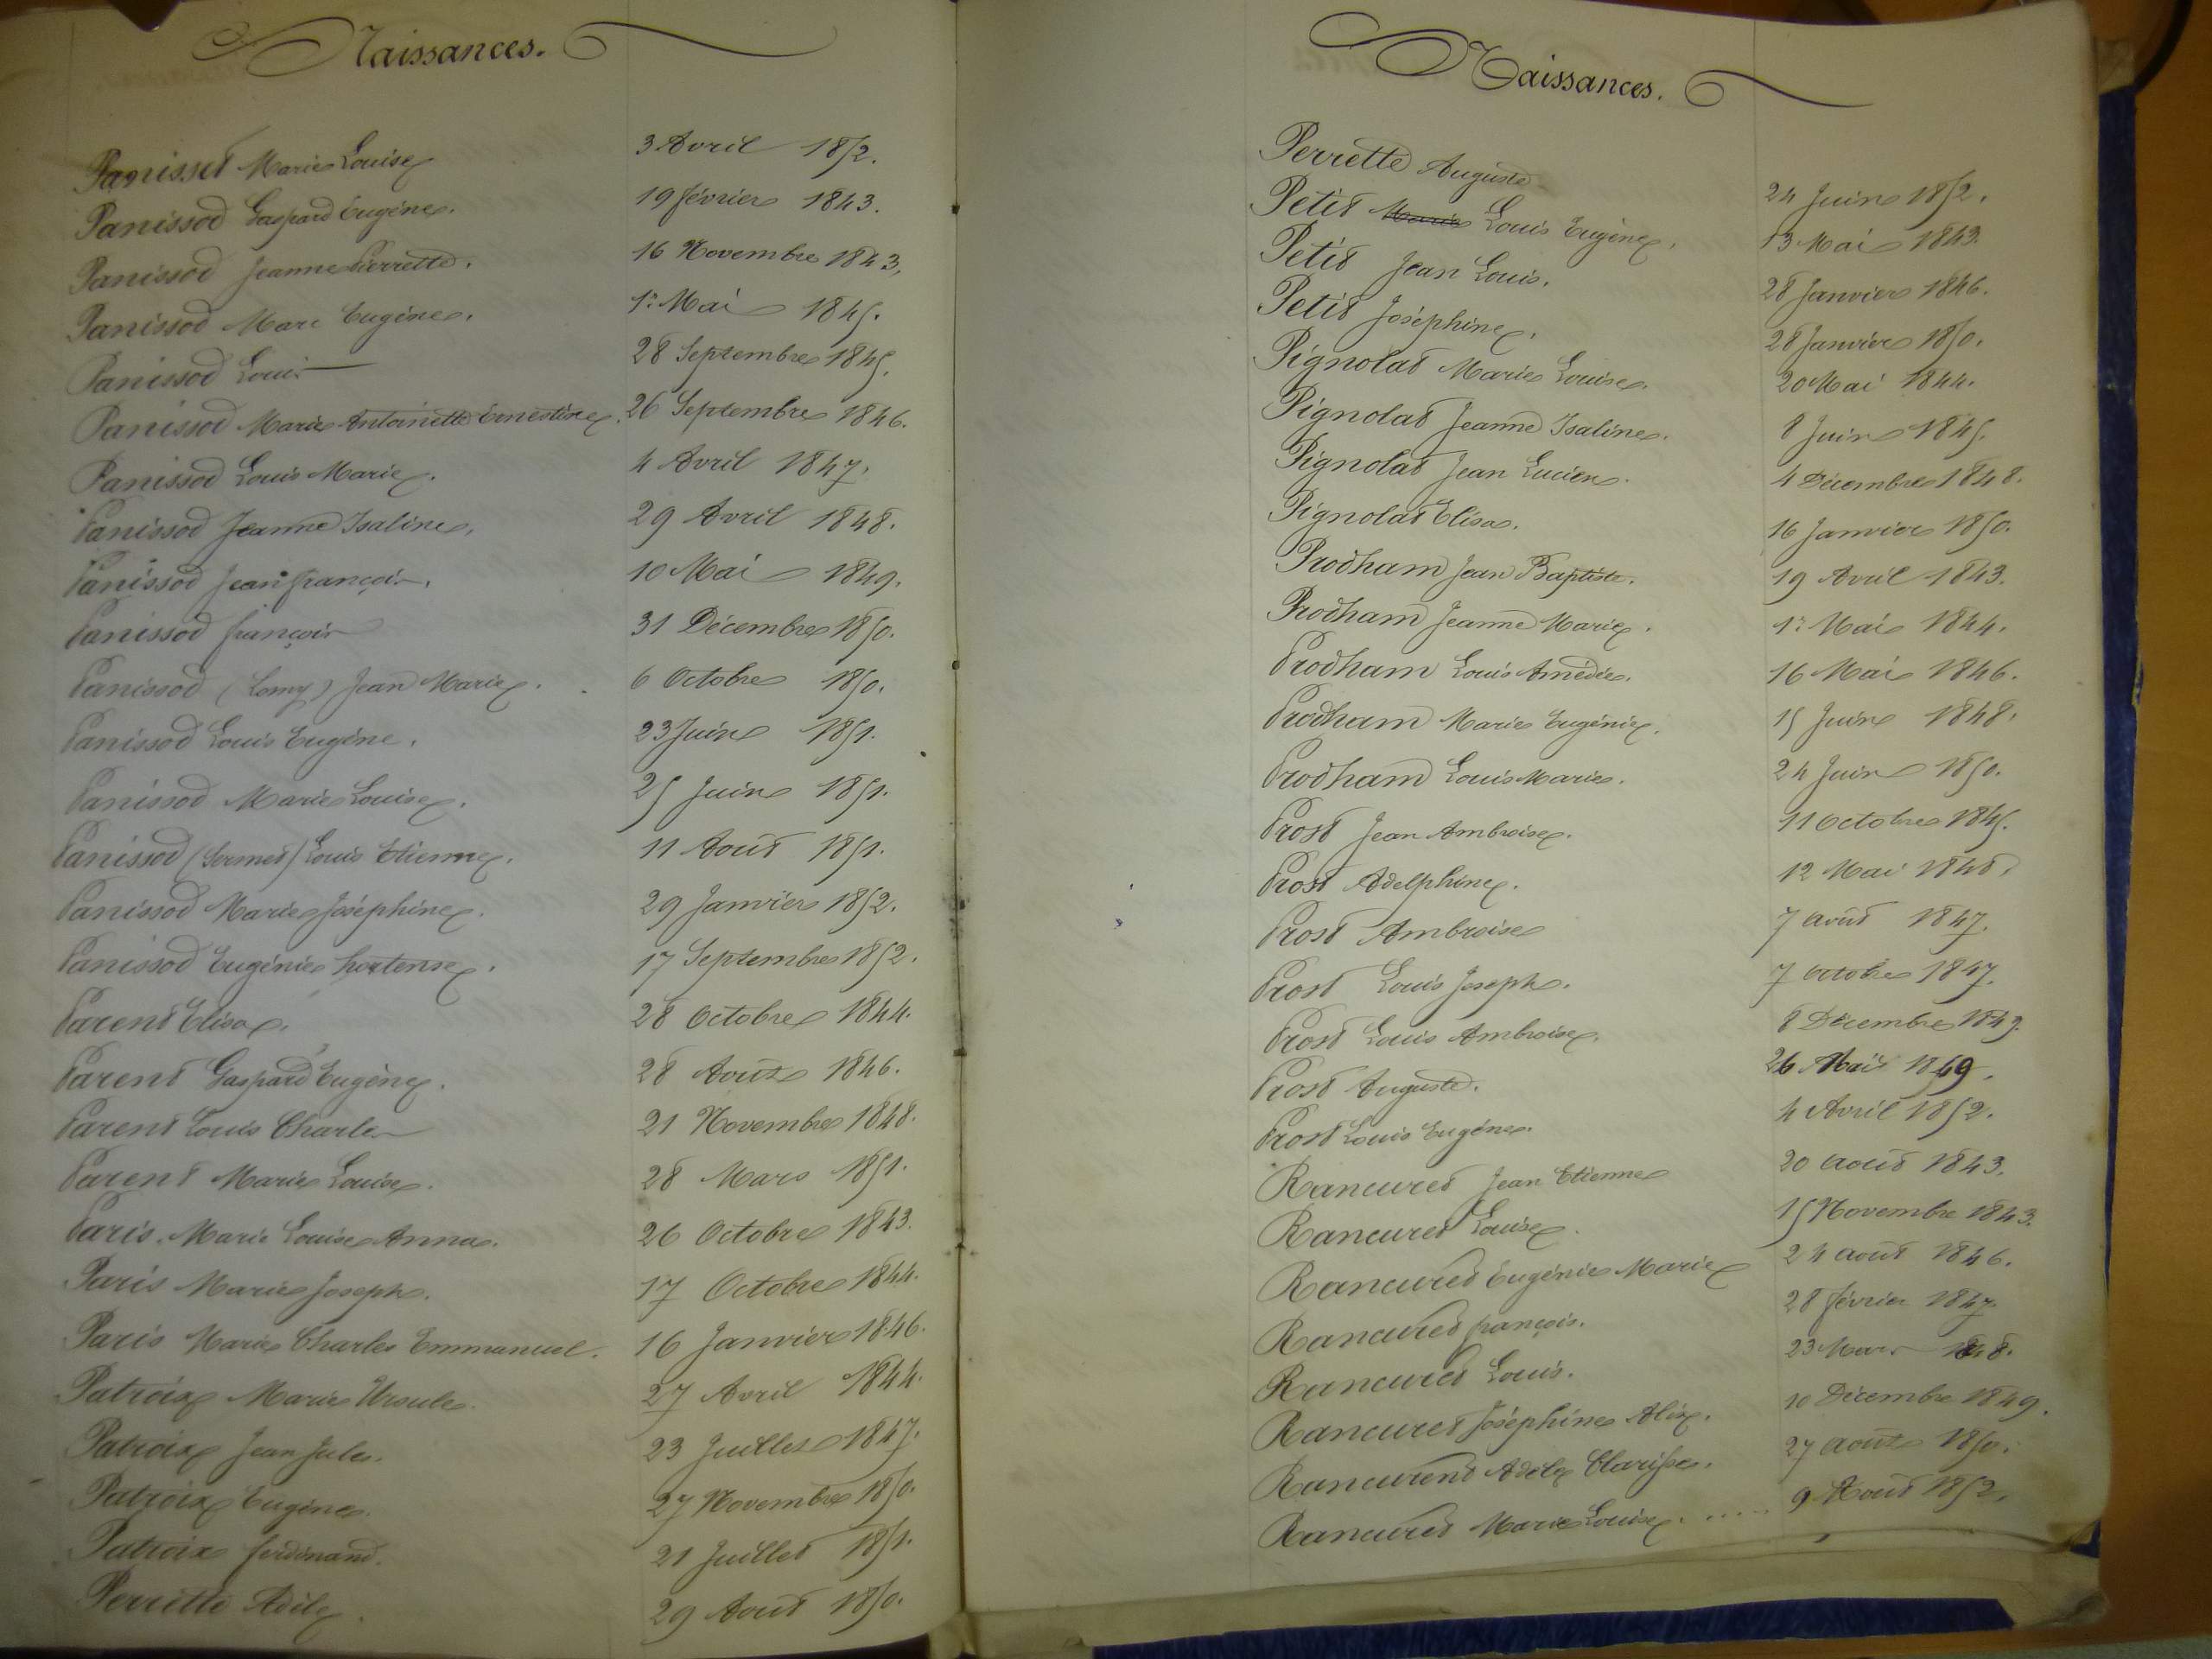 Naissances.
Panisset Marie Louise 3 Avril 1852.
Panissod Gaspard Eugène. 19 février 1843.
Panissod Jeanne Pierrette. 16 Novembre 1843.
Panissod Marc Eugène. 1er Mai 1845.
Panissod Louis 28 Septembre 1845.
Panissod Marie Antoinette Ernestine. 26 Septembre 1846.
Panissod Louis Marie. 4 Avril 1847.
Panissod Jeanne Isaline. 29 Avril 1848.
Panissod Jean françois. 10 Mai 1849.
Panissod françois 31 Décembre 1850.
Panissod (Lomy) Jean Marie. 6 Octobre 1850.
Panissod Louis Eugène. 23 Juin 1851.
Panissod Marie Louise. 25 Juin 1851.
Panissod (Sermet) Louis Etienne. 11 Août 1851.
Panissod Marie Joséphine. 29 Janvier 1852.
Panissod Eugénie hortense. 17 Septembre 1852.
Parent Elisa. 28 Octobre 1844.
Parent Gaspard Eugène. 28 Août 1846.
Parent Louis Charles 21 Novembre 1848.
Parent Marie Louise. 28 Mars 1851.
Paris. Marie Louise Anna. 26 Octobre 1843.
Paris Marie Joseph. 17 Octobre 1844.
Paris Marie Charles Emmanuel. 16 Janvier 1846.
Patroix Marie Ursule. 27 Avril 1844.
Patroix Jean Jules. 23 Juillet 1847.
Patroix Eugène. 27 Novembre 1850.
Patroix ferdinand. 21 Juillet 1851.
Perrette Adèle. 29 Août 1850.
Naissances.
Perrette Auguste 24 Juin 1852.
Petit Marie Louis Eugène. 13 Mai 1843.
Petit Jean Louis. 28 Janvier 1846.
Petit Joséphine. 28 Janvier 1850.
Pignolat Marie Louise. 20 Mai 1844.
Pignolat Jeanne Isaline. 8 Juin 1845.
Pignolat Jean Lucien. 4 Décembre 1848.
Pignolat Elisa. 16 Janvier 1850.
Prodham Jean Baptiste. 19 Avril 1843.
Prodham Jeanne Marie. 1er Mai 1844.
Prodham Louis Amédée. 16 Mai 1846.
Prodham Marie Eugénie. 15 Juin 1848.
Prodham Louis Marie. 24 Juin 1850.
Prost Jean Ambroise. 11 Octobre 1845.
Prost Adelphine. 12 Mai
Prost Ambroise 7 août 1847.
Prost Louis Joseph. 7 octobre 1847.
Prost Louis Ambroise. 8 Décembre 1849.
Prost Auguste. 26 Mai
Prost Louis Eugène. 4 Avril 1852.
Rancuret Jean Etienne 20 août 1843.
Rancuret Louise. 15 Novembre 1843.
Rancuret Eugénie Marie 24 août 1846.
Rancuret françois. 28 février 1847.
Rancuret Louis. 23 Mars 1848.
Rancuret Joséphine Alix. 10 Décembre 1849.
Rancurent Adèle Clarisse. 27 août 1850.
Rancuret Marie Louise. ..... 9 Août 1852.